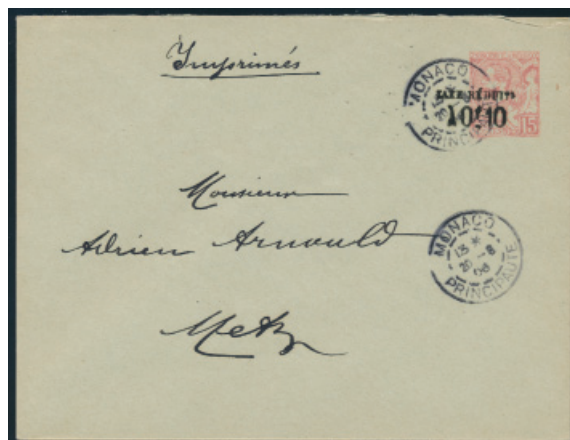 Imprimés
MONACO
PRINCIPAUTÉ
TAXE RÉDUITE
15
Monsieur
Adrien Arnould
MONACO
PRINCIPAUTÉ
Metz